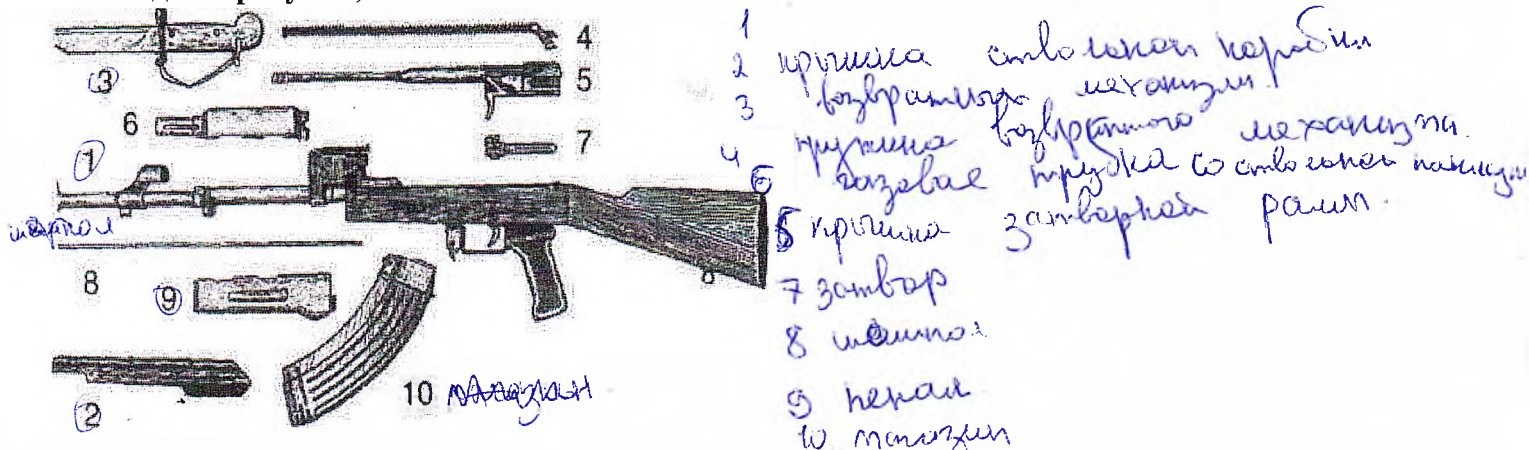 3
4
5
6
7
1
8
9
2
10 магазин
1
2 крышка ствольной коробки
3 возвратный механизм
4 пружина возвратного механизма.
6 газовая трубка со ствольной
5 крышка затворной рамы.
7 затвор
8
9 пенал
10 магазин